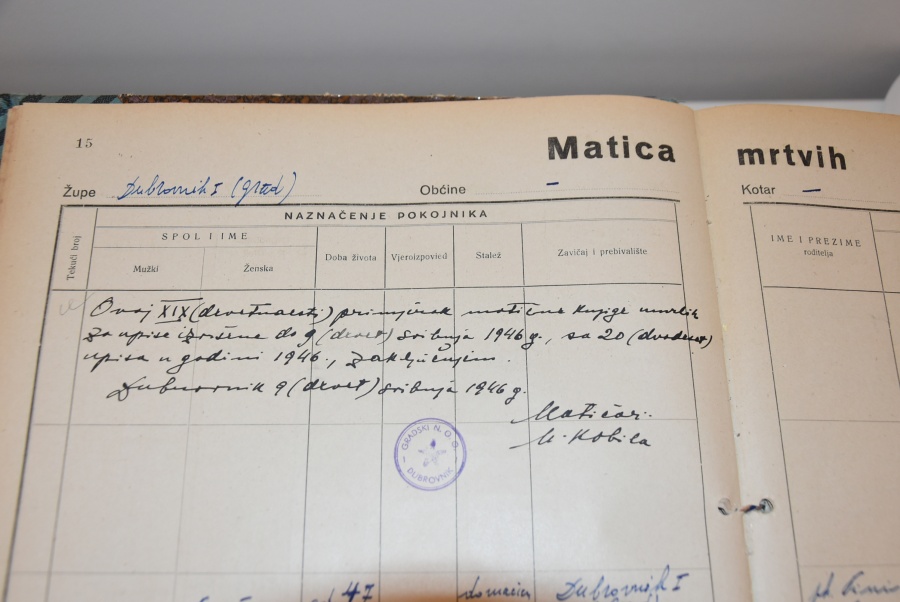 15
Matica mrtvih
Župe Dubrovnik I (grad) Občine – Kotar –
NAZNAČENJE POKOJNIKA
Tekući broj
SPOL I IME
Mužki
Ženska
Doba života
Vjeroizpovied
Stalež
Zavičaj i prebivalište
IME I PREZIME
roditelja
Ovaj XIX (devetnaesti) primjerak matične knjige umrlih
za upise izvršene do 9 (devet) svibnja 1946 g., sa 20 (dvadeset)
upisa u godini 1946., zaključujem.
Dubrovnik 9 (devet) svibnja 1946 g.
Matičar:
GRADSKI N. O. O.
DUBROVNIK
47 Dubrovnik I